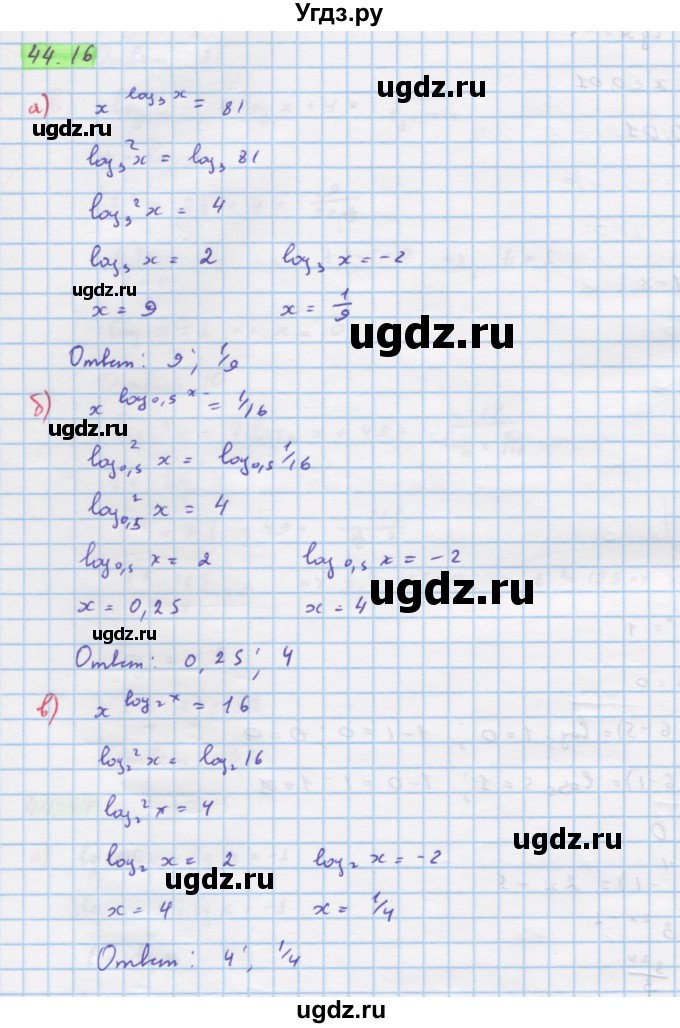 Угдз.ру
44.16
а) x^(log₃ x) = 81
ugdz.ru
ugdz.ru
log₃² x = log₃ 81
log₃² x = 4
log₃ x = 2 log₃ x = -2
ugdz.ru
x = 9 x = 1/9
ugdz.ru
Ответ: 9; 1/9
б) x^(log₀,₅ x) = 1/16
ugdz.ru
log₀,₅² x = log₀,₅ 1/16
log₀,₅² x = 4
log₀,₅ x = 2 log₀,₅ x = -2
ugdz.ru
x = 0,25 x = 4
ugdz.ru
Ответ: 0,25; 4
в) x^(log₂ x) = 16
log₂² x = log₂ 16
log₂² x = 4
ugdz.ru
log₂ x = 2 log₂ x = -2
ugdz.ru
x = 4 x = 1/4
Ответ: 4; 1/4
ugdz.ru